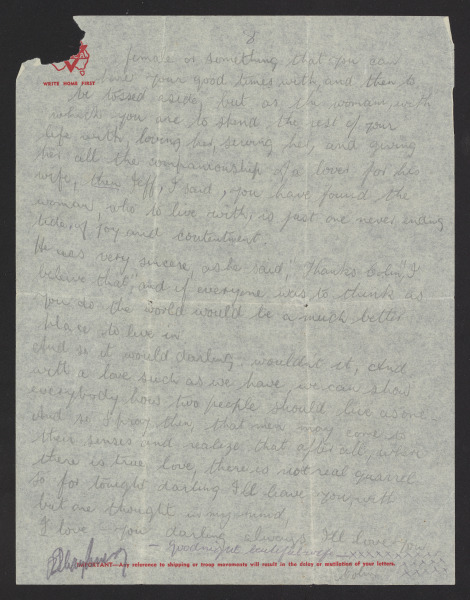 8
WRITE HOME FIRST
female or something that you can
have your good times with, and then to
be tossed aside, but as the woman with
which you are to spend the rest of your
life with, loving her, serving her, and giving
her all the companionship of a lover for his
wife, then Jeff, I said, you have found the
woman who to live with is just one never ending
of joy and contentment
He was very sincere as he said, "Thanks Colin, I
believe that," and if everyone was to think as
you do the world would be a much better
place to live in.
And so it would darling, wouldn't it, and
with a love such as we have, we can show
everybody how two people should live as one
And so I pray then, that men may come to
their senses and realize that after all, when
there is true love, there is not real quarrel
so for tonight darling I'll leave you with
but one thought in my mind,
I love you darling always I'll love you
Goodnight wife
Colin
IMPORTANT—Any reference to shipping or troop movements will result in the delay or mutilation of your letters.